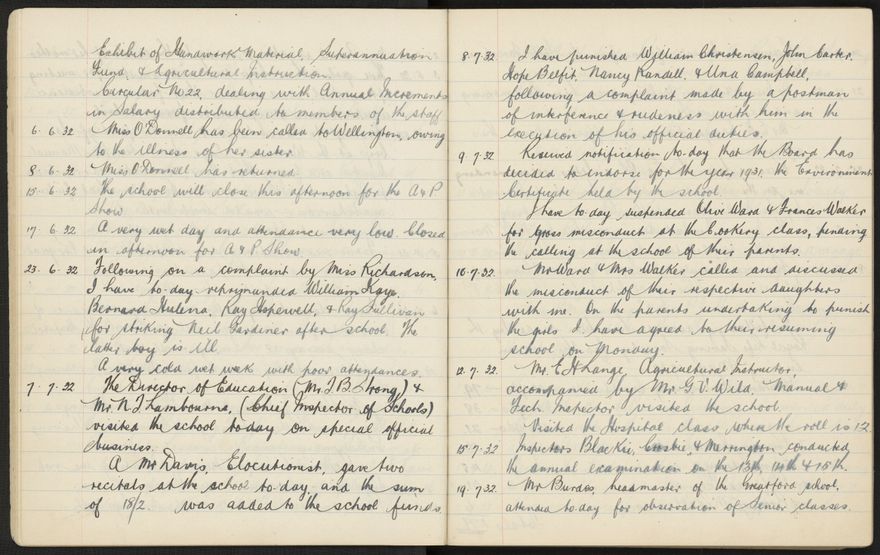 Exhibit of Handwork Material, Superannuation
Fund, & Agricultural instruction.
Circular No 22, dealing with Annual Increments
in Salary distributed to members of the staff
6. 6. 32 Miss O'Donnell has been called to Wellington, owing
to the illness of her sister.
8. 6. 32 Miss O'Donnell has returned.
15. 6. 32 The school will close this afternoon for the A & P
Show
17. 6. 32 A very wet day and attendance very low. Closed
in afternoon for A & P Show.
23. 6. 32 Following on a complaint by Miss Richardson,
I have to-day reprimanded William Kays,
Bernard Hulena, Ray Hopewell, & Ray Sullivan
for striking Neil Gardiner after school. The
latter boy is ill.
A very cold wet week with poor attendances.
7. 7. 22 The Director of Education (Mr. T. B. Strong) &
Mr. N. T. Lambourne, (Chief Inspector of Schools)
visited the school to-day on special official
business.
A Mr Davis, Elocutionist, gave two
recitals at the school to-day, and the sum
of 18/2. was added to the school funds.
8. 7. 32 I have punished William Christensen, John Carter,
Hope Belfit, Nancy Randell, & Una Campbell,
following a complaint made by a postman
of interference & rudeness with him in the
execution of his official duties.
9. 7. 32 Received notification to-day that the Board has
decided to indorse for the year 1931, the Environment
Certificate held by the school.
I have to-day suspended Olive Ward & Frances Walker
for gross misconduct at the Cookery class, pending
the calling at the school of their parents.
10. 7. 32. Mr Ward & Mrs Walker called and discussed
the misconduct of their respective daughters
with me. On the parents undertaking to punish
the girls I have agreed to their resuming
school on Monday.
12. 7. 32. Mr. E. H. Lange, Agricultural Instructor,
accompanied by Mr. G. V. Wild, Manual &
Tech. Inspector visited the school.
Visited the Hospital class where the roll is 12
15. 7. 32 Inspectors Blackie, & Merrington conducted
the annual examination on the 13th, 14th & 15th.
19. 7. 32. Mr Burdes, headmaster of the Greatford school,
attended to-day for observation of Senior classes.